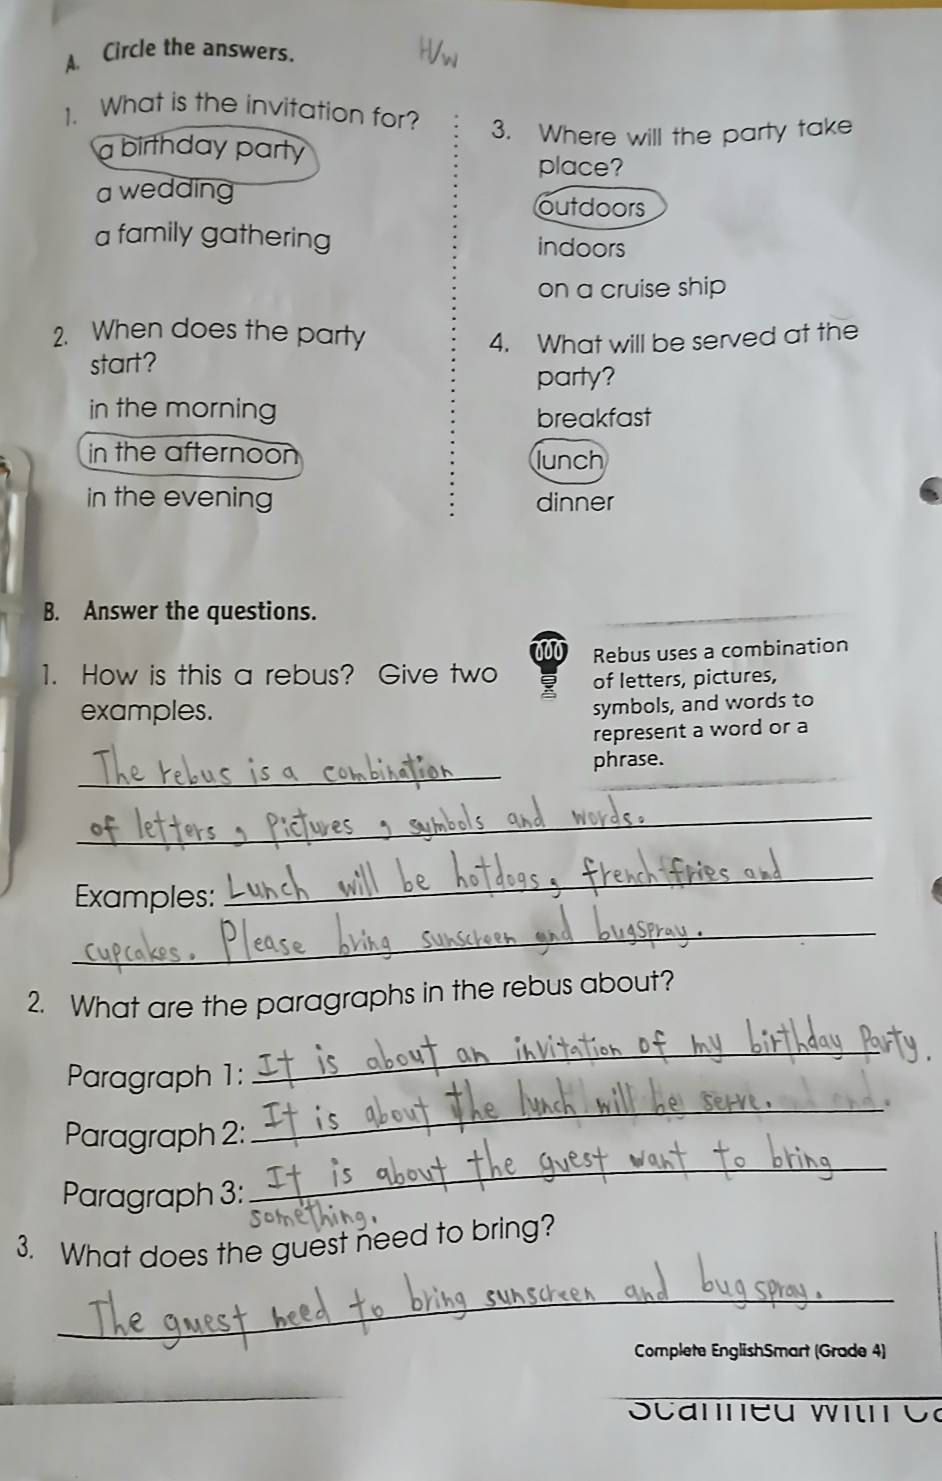 A. Circle the answers.
H/w
1. What is the invitation for?
a birthday party
a wedding
a family gathering
2. When does the party
start?
in the morning
in the afternoon
in the evening
3. Where will the party take
place?
outdoors
indoors
on a cruise ship
4. What will be served at the
party?
breakfast
lunch
dinner
B. Answer the questions.
1. How is this a rebus? Give two
examples.
Rebus uses a combination
of letters, pictures,
symbols, and words to
represent a word or a
phrase.
The rebus is a combination
of letters, pictures, symbols and words.
Examples: Lunch will be hotdogs, french fries and
cupcakes. Please bring sunscreen and bugspray.
2. What are the paragraphs in the rebus about?
Paragraph 1: It is about an invitation of my birthday Party.
Paragraph 2: It is about the lunch will be serve.
Paragraph 3: It is about the guest want to bring
something.
3. What does the guest need to bring?
The guest need to bring sunscreen and bug spray.
Complete EnglishSmart (Grade 4)
Scanned with